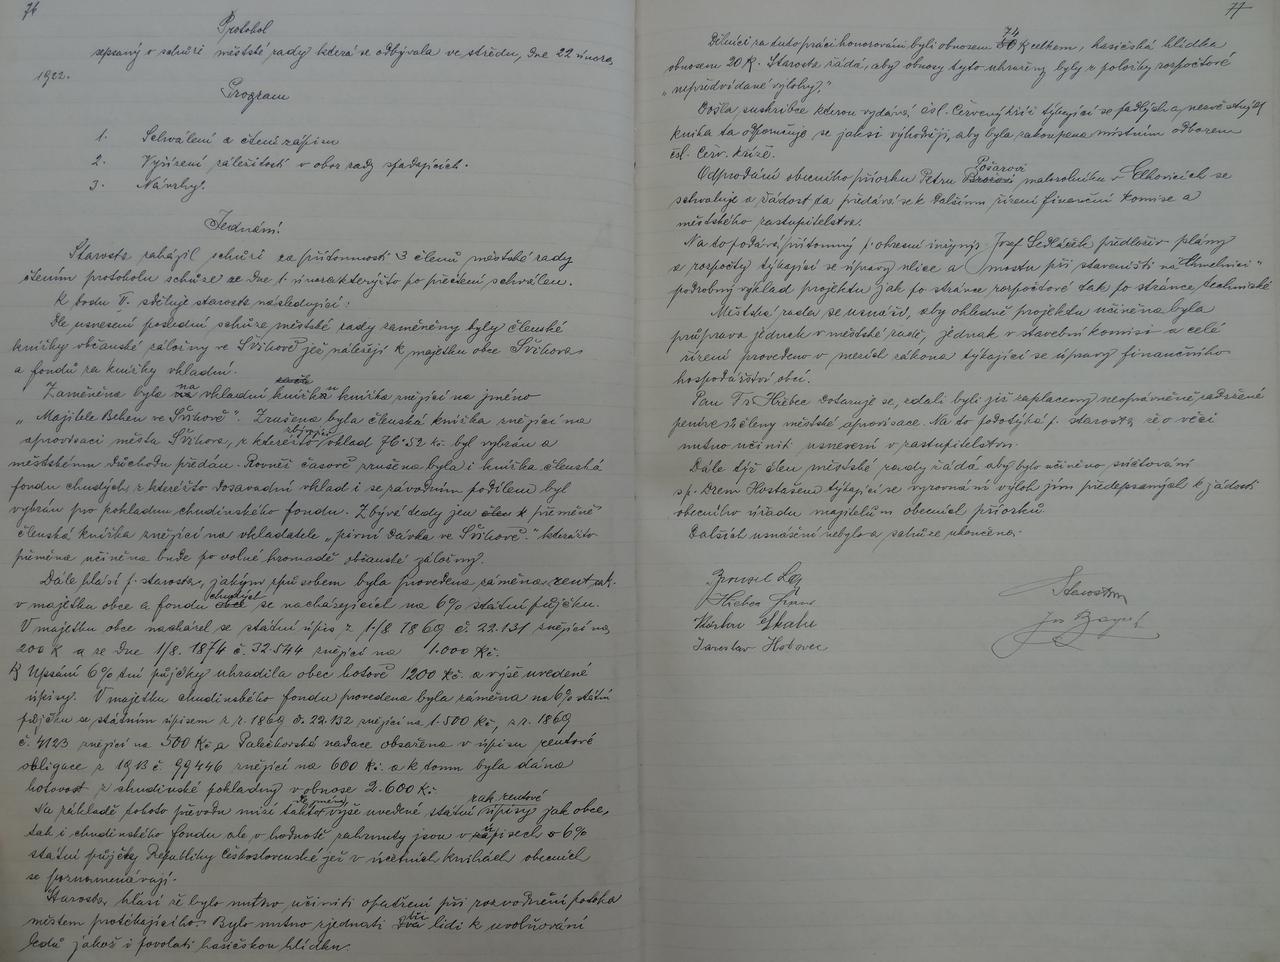 76
Protokol
sepsaný o schůzi městské rady která se odbývala ve středu, dne 22 února
1922.
Program
1. Schválení a čtení zápisu
2. Vyřízení záležitostí v obor rady spadajících.
3. Návrhy.
Jednání
Starosta zahájil schůzi za přítomnosti 3 členů městské rady
čtením protokolu schůze ze dne 1. února kterýžto po přečtení schválen.
K bodu II. sděluje starosta následující:
Dle usnesení poslední schůze městské rady zaměněny byly členské
knížky občanské záložny ve Švihově jež náležejí k majetku obce Švihova
a fondů za knížky vkladní.
Zaměněna byla na vkladní knížku knížka znějící na jméno
„Majitele Behen ve Švihově". Zrušena byla členská knížka znějící na
aprovisaci města Švihova, z kteréžto vklad 76·52 Kč byl vybrán a
městskému důchodu předán. Rovněž časově zrušena byla i knížka členská
fondu chudých z kteréžto dosavadní vklad i se závodním podílem byl
vybrán pro pokladnu chudinského fondu. Zbývá tedy jen člen k přeměně
členská knížka znějící na vkladatele „pivní dávka ve Švihově." kterážto
přeměna učiněna bude po valné hromadě občanské záložny.
Dále hlásí p. starosta, jakým způsobem byla provedena záměna rent rak.
v majetku obce a fondu obce chudých se nacházejících na 6% státní půjčku.
V majetku obce nacházel se státní úpis z 1./8 1869 č. 22.131 znějící na
200 K a ze dne 1/8. 1874 č. 32.544 znějící na 1.000 Kč.
Upsání 6% tní půjčky uhradila obec hotově 1200 Kč. a výše uvedené
úpisy. V majetku chudinského fondu provedena byla záměna na 6% státní
půjčku se státním úpisem z r. 1869 č. 22.132 znějící na 1.500 Kč, z r. 1869
č. 4123 znějící na 500 Kč a Palečkovská nadace obsažena v úpisu rentové
obligace z 1913 č. 99446 znějící na 600 Kč. a k tomu byla dána
hotovost z chudinské pokladny v obnose 2.600 Kč
Na základě tohoto převodu mizí takto výše uvedené státní rak. rentové úpisy jak obce,
tak i chudinského fondu ale v hodnotě zahrnuty jsou v úpisech 6%
státní půjčky Republiky Československé jež v účetních knihách obecních
se poznamenávají.
Starosta hlásí že bylo nutno učiniti opatření při rozvodnění potoka
městem protékajícího. Bylo nutno zjednati dva tři lidi k uvolňování
ledů jakož i povolati hasičskou hlídku.
77
Dělníci za tuto práci honorováni byli obnosem 74 K celkem, hasičská hlídka
obnosem 20 K. Starosta žádá, aby obnosy tyto uhrazeny byly z položky rozpočtové
„nepředvídané výlohy."
Došla subskribce kterou vydává čsl. Červený kříž týkající se padlých a nezvěstných
kniha ta doporučuje se jakožto výhodnější, aby byla zakoupena místním odborem
čsl. Červ. kříže.
Odprodání obecního pozemku Petru Požarovi malorolníku v Lhovicích se
schvaluje a žádost ta předává se k dalšímu řízení finanční komise a
městského zastupitelstva.
Na to podává přítomný p. okresní inženýr Josef Sedláček předloživ plány
a rozpočty týkající se úpravy ulice a mostu při staveništi na „Chmelnici"
podrobný výklad projektu jak po stránce rozpočtové tak po stránce technické
Městská rada se usnáší, aby ohledně projektu učiněna byla
průprava jednak v městské radě, jednak v stavební komisi a celé
řízení provedeno v mezích zákona týkající se úpravy finančního
hospodářství obcí.
Pan Fr. Hřebec dotazuje se, zdali byly již zaplaceny neoprávněně zadržené
peníze členy městské aprovisace. Na to podotýká p. starosta, že o věci
nutno učiniti usnesení v zastupitelstvu.
Dále týž člen městské rady žádá aby bylo učiněno súčtování
s p. Drem Hostašem týkající se vyrovnání výloh jím předepsaných k žádosti
obecního úřadu majitelům obecních pozemků.
Dalších usnášení nebylo a schůze ukončena.
Starosta
Václav Skala
Jaroslav Hohavec